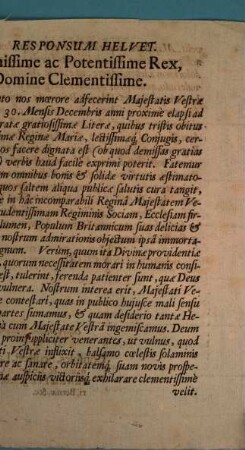 RESPONSUM HELVET.
nissime ac Potentissime Rex,
Domine Clementissime.
nto nos mœrore adfecerint Majestatis Vestræ
30. Mensis Decembris anni proximè elapsi ad
ratæ gratiosissimæ Literæ, quibus tristis obitus
imæ Reginæ Mariæ, lectissimæq; Conjugis, cer-
os facere dignata est (ob quod demissas gratias
) verbis haud facile exprimi poterit. Fatemur
m omnibus bonis & solidæ virtutis æstimato-
quos saltem aliqua publicæ salutis cura tangit,
e in hac incomparabili Reginâ Majestatem Ve-
udentissimam Regiminis Sociam, Ecclesiam fir-
lumen, Populum Britannicum suas delicias &
nostrum admirationis objectum ipsâ immorta-
gnum. Verùm, quum ita Divinæ providentiæ
, quorum necessitatem morari in humanis consi-
est, tulerint, ferenda patienter sunt, quæ Deus
vulnera. Nostrum interea erit, Majestati Ve-
e contestari, quas in publico hujusce mali sensu
partes sumamus, & quam desiderio tantæ He-
nà cum Majestate Vestrâ ingemiscamus. Deum
proin supplicitèr venerantes, ut vulnus, quod
ti Vestræ inflixit, balsamo cœlestis solaminis
re ac sanare, orbitatemq; suam novis prospe-
æ auspiciis victoriisq; exhilarare clementissimè
velit.